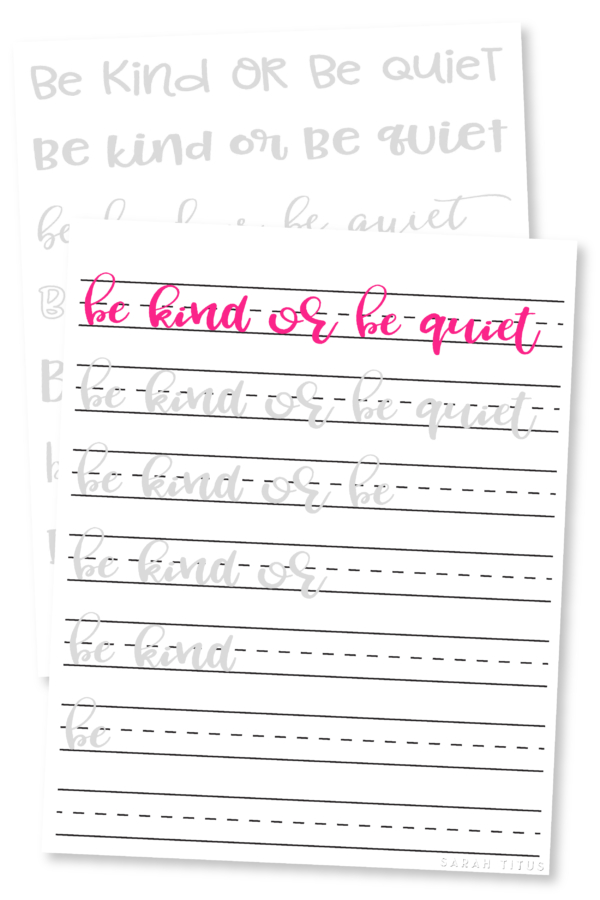 Be Kind OR Be QuieT
Be kind or Be quiet
be kind or be quiet
B
B
b
be kind or be quiet
be kind or be quiet
be kind or be
be kind or
be kind
be
SARAH TITUS